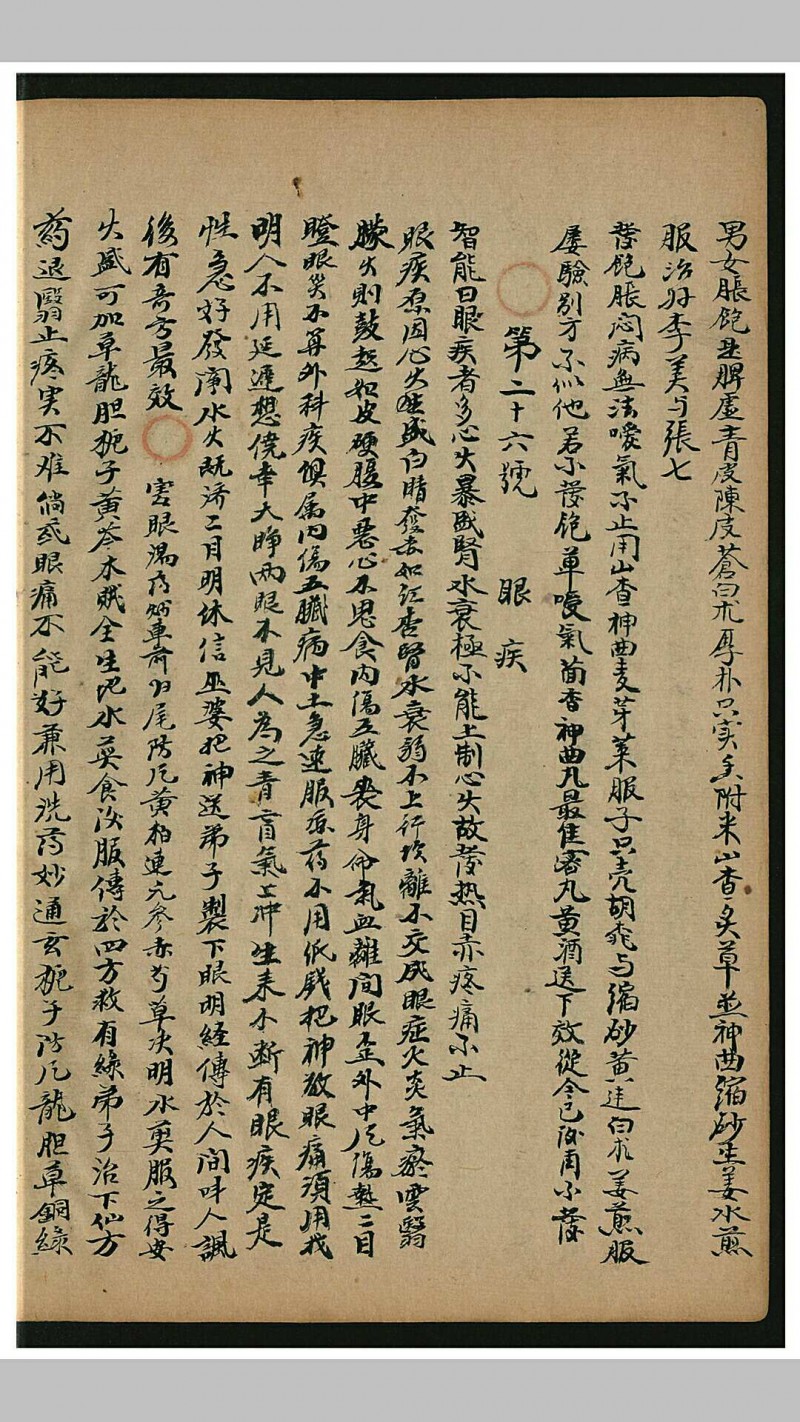 男女脹飽並脾虛青皮陳皮蒼白朮厚朴只實香附米山查炙草並神曲縮砂生姜水煎
服治好李美与張七
發飽脹悶病無法噯氣不止用山查神曲麦芽萊服子只壳胡桃与縮砂黄連白朮姜煎服
屡驗别方不似他若不發飽単噯氣茴香神曲丸最佳蜜丸黄酒送下效從今已後再不發
第二十六號 眼疾
智能曰眼疾者多心火暴盛腎水衰極不能上制心火故發热目赤疼痛不止
眼疾原因心火盛白睛發赤如红杏腎水衰弱不上行坎離不交成眼症火炎氣瘀雲翳
朦火則鼓起如皮硬腹中惡心不思食内傷五臟喪身命氣血離间眼歪外中风傷熱二目
瞪眼災不算外科疾俱属内傷五臟病中土急速服凉药不用低錢把神敬眼痛須用找
明人不用延遲想僥幸大睁两眼不見人為之青盲氣上冲生来不断有眼疾定是
性急好發闇水火既济二目明休信巫婆把神送弟子製下眼明経傳於人间呌人諷
後有奇方最效 害眼湯药炳車前归尾防风黄柏連元參赤芍草决明水煎服之得安
火盛可加草龍胆枙子黄芩木贼全生地水英食後服傳於四方救有緣弟子治下仙方
药退翳止疼实不难倘或眼痛不能好兼用洗药妙通玄枙子防风龍胆草銅緑